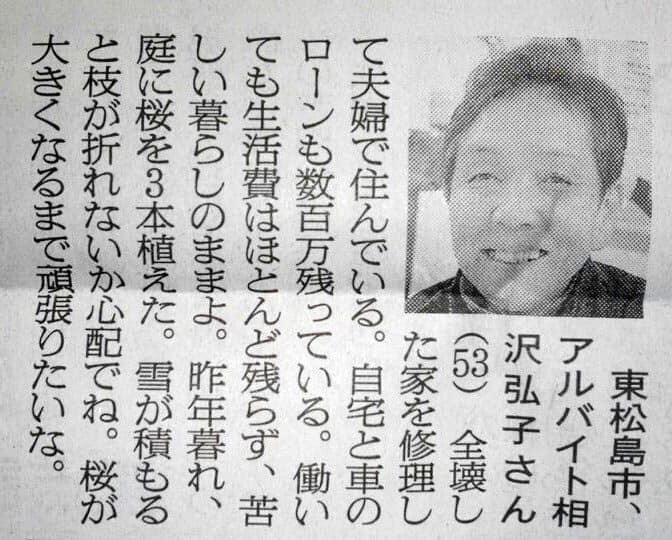 東松島市、
アルバイト相
沢弘子さん
(53) 全壊し
た家を修理し
て夫婦で住んでいる。自宅と車の
ローンも数百万残っている。働い
ても生活費はほとんど残らず、苦
しい暮らしのままよ。昨年暮れ、
庭に桜を3本植えた。雪が積もる
と枝が折れないか心配でね。桜が
大きくなるまで頑張りたいな。